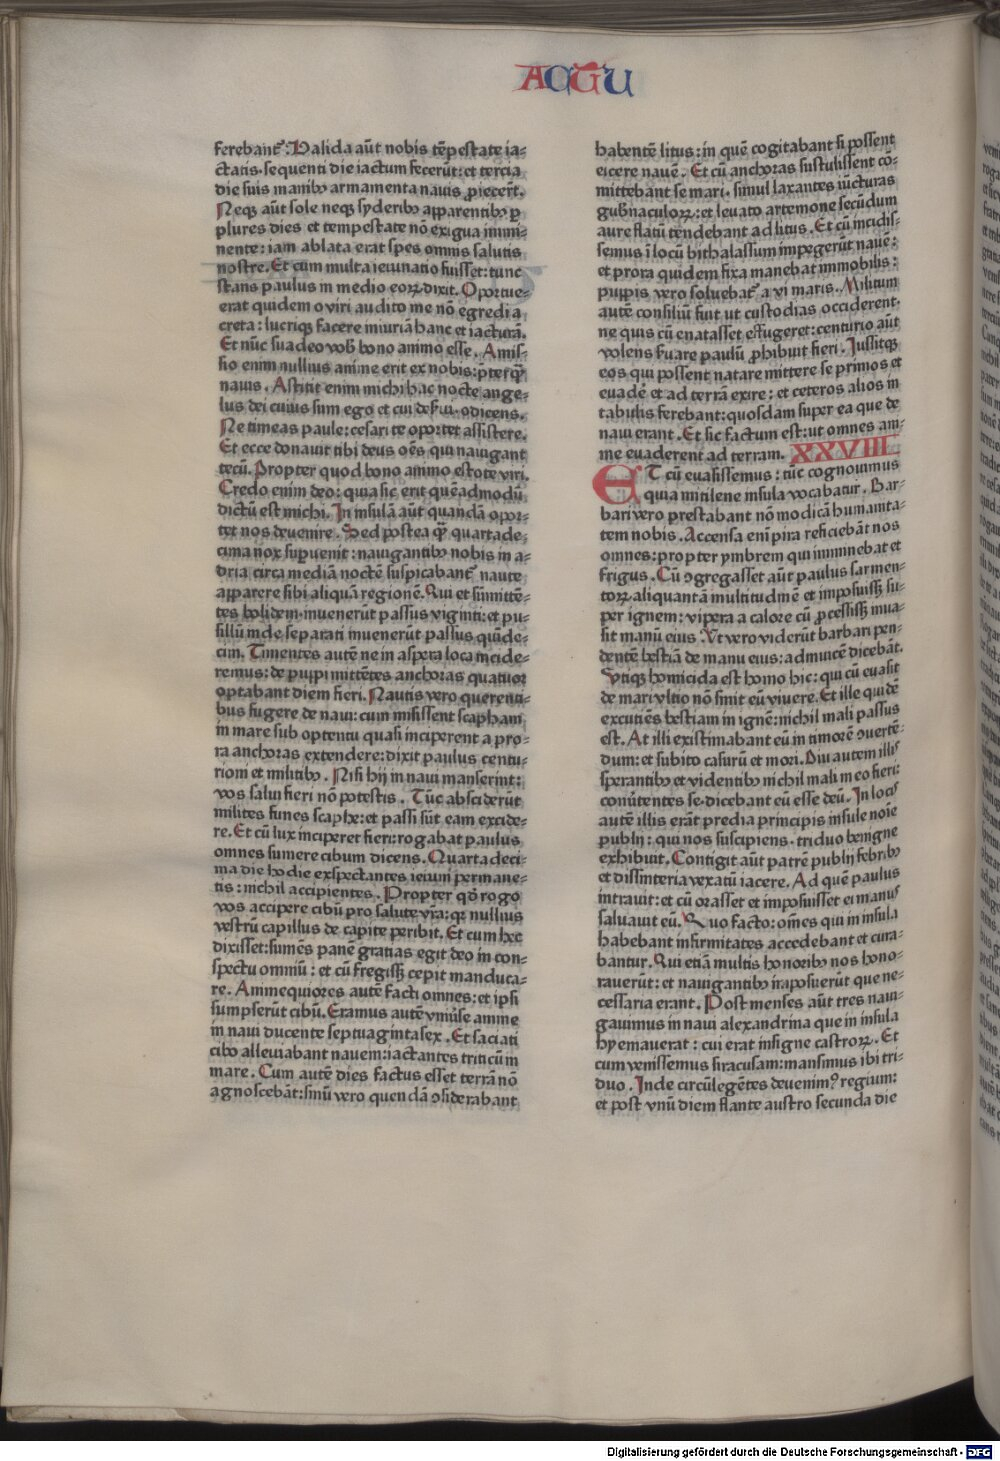 ACTU
ferebant᷑: Valida aūt nobis tēpestate ia⸗
ctatis. sequenti die iactum fecerūt: et tercia
die suis manibꝫ armamenta nauis ꝓiecert̄.
Neqꝫ aūt sole neqꝫ syderibꝫ apparentibꝫ ꝑ
plures dies et tempestate nō exigua immi⸗
nente: iam ablata erat spes omnis salutis
nostre. Et cum multa ieiunatio fuisset: tunc
stans paulus in medio eoꝝ dixit. Oportue⸗
rat quidem o viri audito me nō egredi a
creta: lucriqꝫ facere iniuriā hanc et iacturā.
Et nūc suadeo vob̄ bono animo esse. Amis⸗
sio enim nullius anime erit ex nobis: p̄terqꝫ̄
nauis. Astitit enim michi hac nocte ange⸗
lus dei cuius sum ego et cui des̄uio dicens.
Ne timeas paule: cesari te oportet assistere.
Et ecce donauit tibi deus oēs qui nauigant
tecū. Propter quod bono animo estote viri.
Credo enim deo: quia sic erit quēadmodū
dictū est michi. In insulā aūt quandā opor⸗
tet nos deuenire. Sed postea qꝫ̄ quartade⸗
cima nox supuenit: nauigantibꝫ nobis in a⸗
dria circa mediā noctē suspicabant᷑ naute
apparere sibi aliquā regionē. Qui et sūmittē⸗
tes bolidem inuenerūt passus viginti: et pu⸗
sillū inde separati inuenerūt passus quīde⸗
cim. Timentes autē ne in aspera loca incide⸗
remus: de puppi mittētes anchoras quatuor
optabant diem fieri. Nautis vero querenti⸗
bus fugere de naui: cum misissent scapham
in mare sub optentu quasi inciperent a pro⸗
ra anchoras extendere: dixit paulus centu⸗
rioni et militibꝫ. Nisi hij in naui manserint:
vos salui fieri nō potestis. Tūc absciderūt
milites funes scaphe: et passi sūt eam excide⸗
re. Et cū lux inciperet fieri: rogabat paulus
omnes sumere cibum dicens. Quarta deci⸗
ma die hodie exspectantes ieiuni permane⸗
tis: nichil accipientes. Propter qḋ rogo
vos accipere cibū pro salute vr̄a: qꝛ nullius
vestrū capillus de capite peribit. Et cum hec
dixisset: sumēs panē gratias egit deo in con⸗
spectu omniū: et cū fregissꝫ cepit manduca⸗
re. Animequiores autē facti omnes: et ipsi
sumpserūt cibū. Eramus autē vniūse anime
in naui ducente septuagintasex. Et saciati
cibo alleuiabant nauem: iactantes triticū in
mare. Cum autē dies factus esset terrā nō
agnoscebāt: sinū vero quendā ↄsiderabant
habentē litus: in quē cogitabant si possent
eicere nauē. Et cū anchoras sustulissent cō⸗
mittebant se mari. simul laxantes iūcturas
gub̄naculoꝝ: et leuato artemone secūdum
aure flatū tendebant ad litus. Et cū incidis⸗
semus ī locū bithalassum impegerūt nauē:
et prora quidem fixa manebat immobilis:
puppis vero soluebat᷑ a vi maris. Militum
autē consiliū fuit ut custodias occiderent.
ne quis cū enatasset effugeret: centurio aūt
volens s̄uare paulū ꝓhibuit fieri. Iussitqꝫ
eos qui possent natare mittere se primos et
euadē et ad terrā exire: et ceteros alios in
tabulis ferebant: quosdam super ea que de
naui erant. Et sic factum est: ut omnes ani⸗
me euaderent ad terram. XXVIII
ET cū euasissemus: tūc cognouimus
quia mitilene insula vocabatur. Bar⸗
bari vero prestabant nō modicā humanita⸗
tem nobis. Accensa eni pira reficiebāt nos
omnes: propter ymbrem qui imminebat et
frigus. Cū ↄgregasset aūt paulus sarmen⸗
toꝝ aliquantā multitudinē et imposuissꝫ su⸗
per ignem: vipera a calore cū ꝓcessissꝫ inua⸗
sit manū eius. Vt vero viderūt barbari pen⸗
dentē bestiā de manu eius: adinuicē dicebāt.
Vtiqꝫ homicida est homo hic: qui cū euasit
de mari vltio nō sinit eū viuere. Et ille quidē
excutiēs bestiam in ignē: nichil mali passus
est. At illi existimabant eū in timorē ↄuertē⸗
dum: et subito casurū et mori. Diu autem illis
sperantibꝫ et videntibꝫ nichil mali in eo fieri:
conūtentes se dicebant eū esse deū. In locis
autē illis erāt predia principis insule noīe
publij: qui nos suscipiens. triduo benigne
exhibuit. Contigit aūt patrē publij febribꝫ
et dissinteria vexatū iacere. Ad quē paulus
intrauit: et cū orasset et imposuisset ei manus
saluauit eū. Quo facto: om̄es qui in insula
habebant infirmitates accedebant et cura⸗
bantur. Qui etiā multis honoribꝫ nos hono⸗
rauerūt: et nauigantibꝫ imposuerūt que ne⸗
cessaria erant. Post menses aūt tres naui⸗
gauimus in naui alexandrina que in insula
hyemauerat: cui erat insigne castroꝝ. Et
cum venissemus siracusam: mansimus ibi tri⸗
duo. Inde circūlegētes deuenimꝰ regium:
et post vnū diem flante austro secunda die
Digitalisierung gefördert durch die Deutsche Forschungsgemeinschaft - DFG